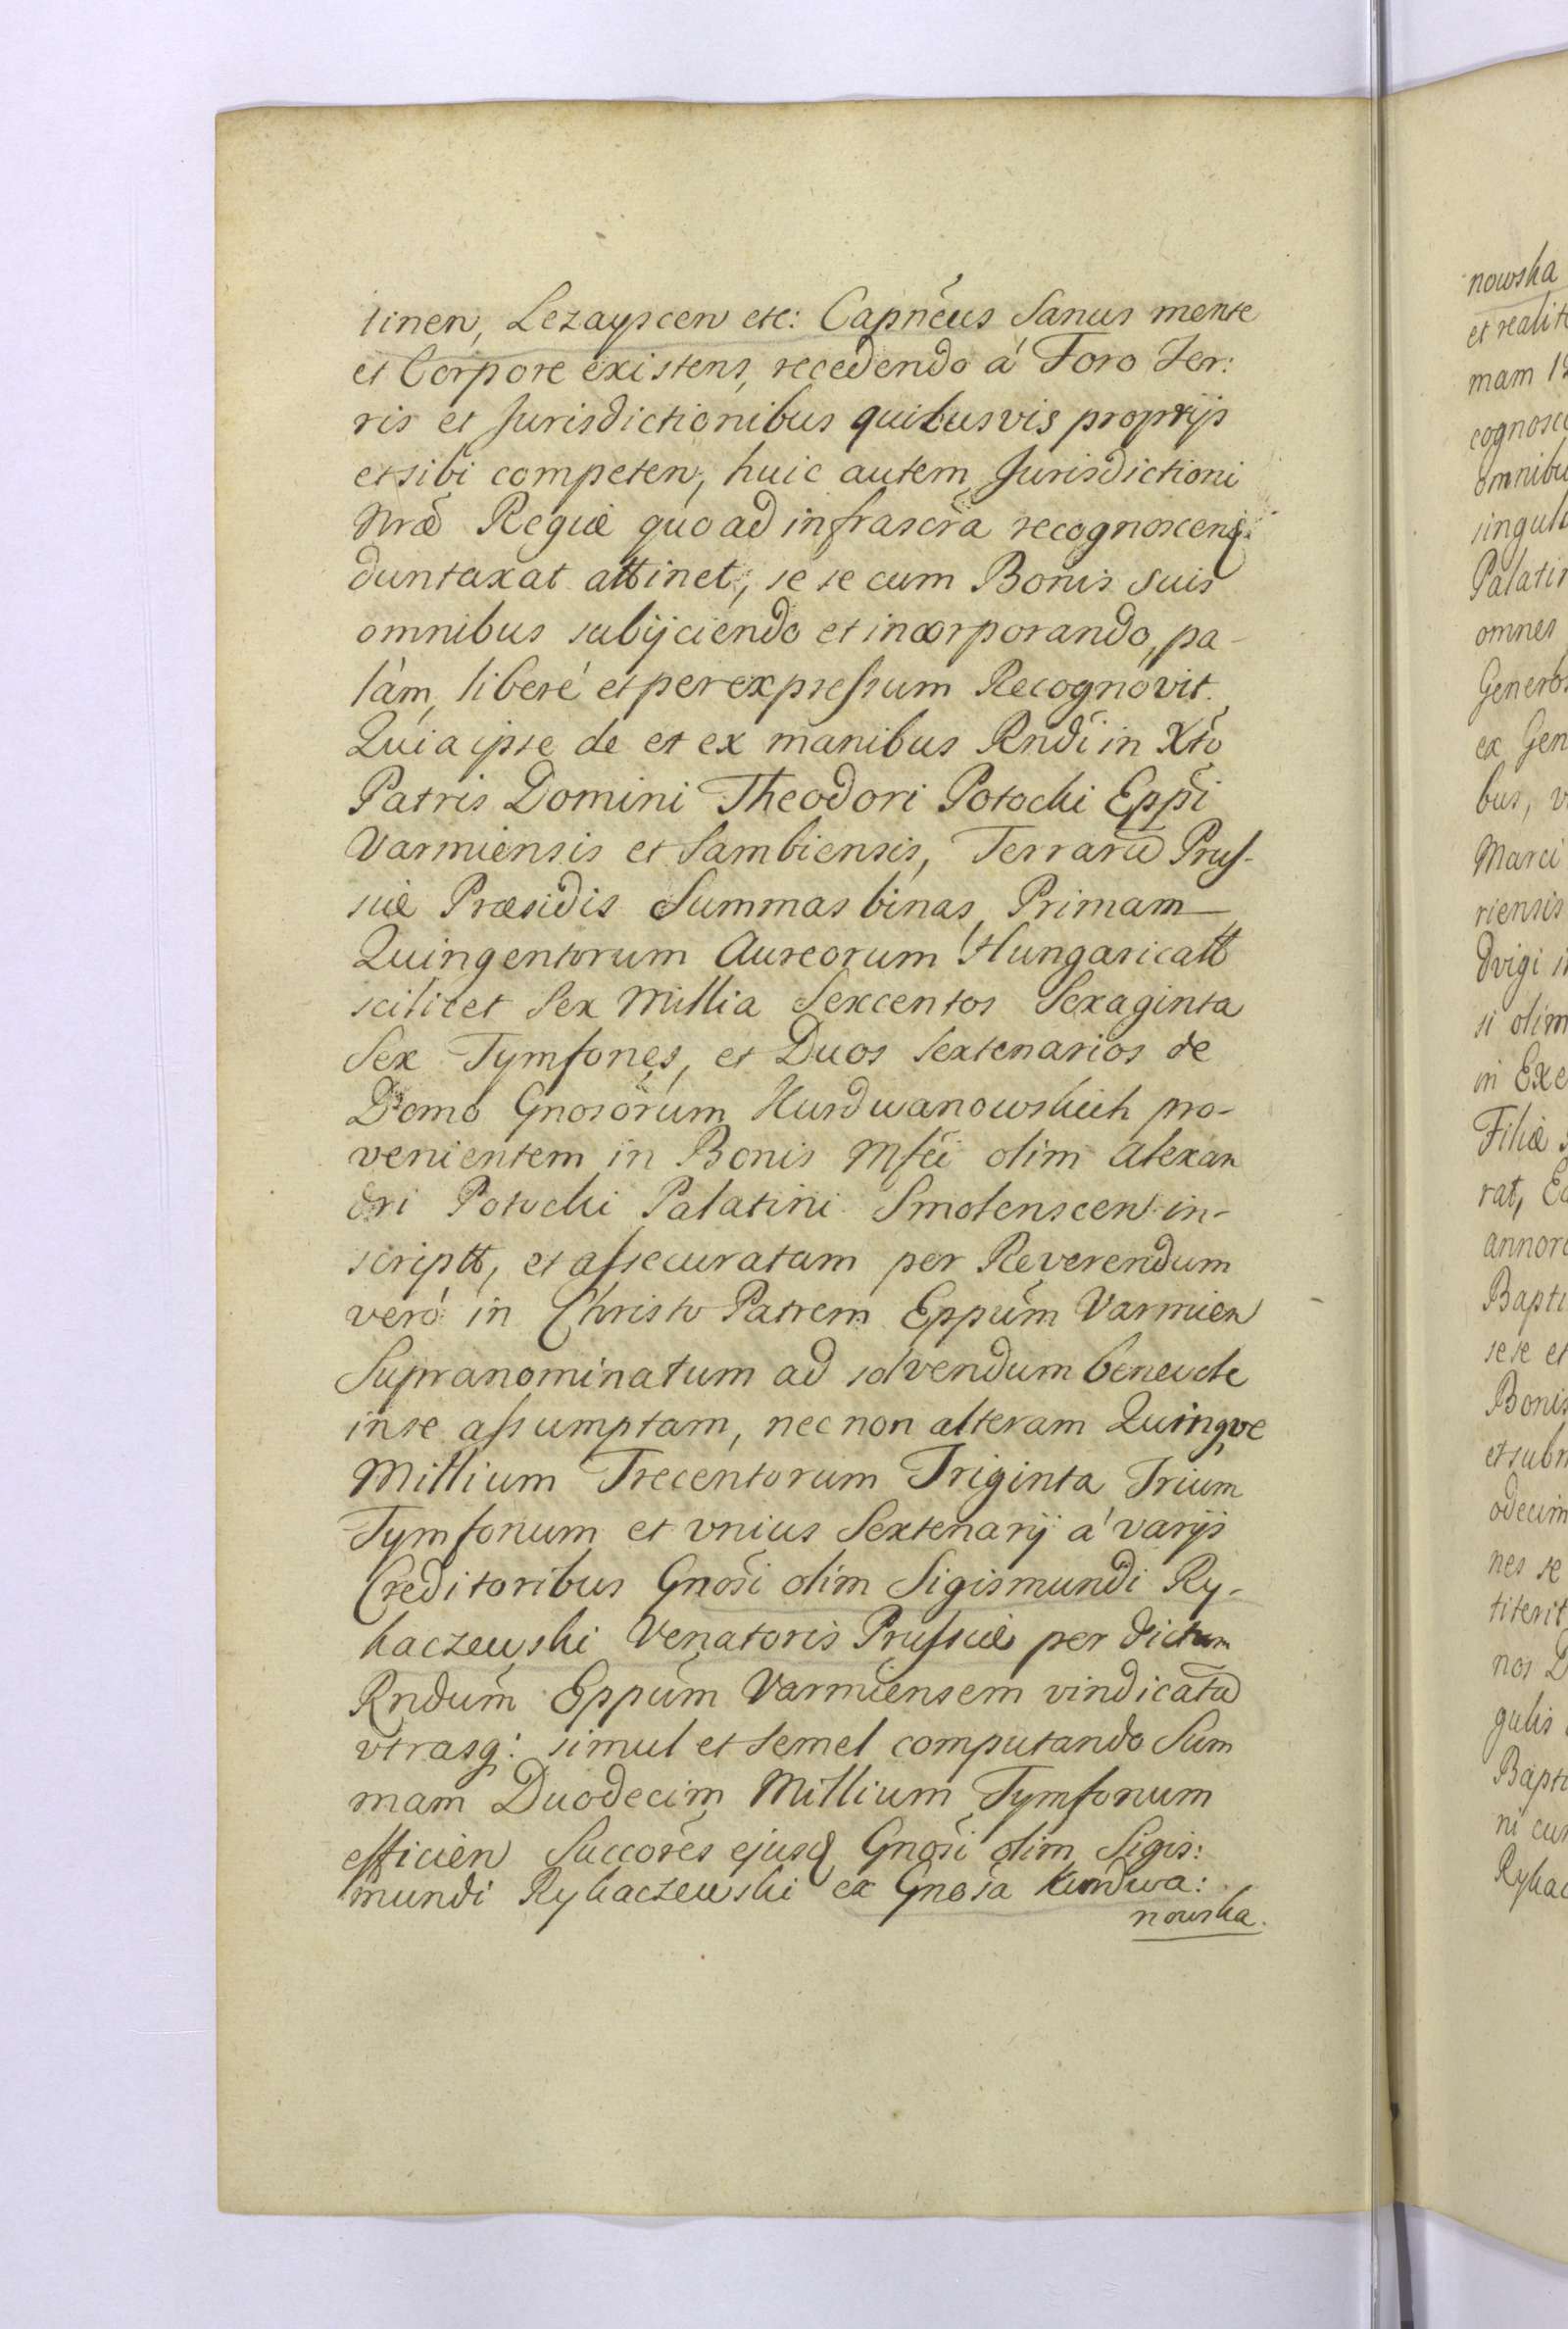 tinen, Lezayscen etc: Capnẽus Sanus mente
et Corpore existens, recedendo á Foro Ter:
ris et Jurisdictionibus quibusvis proprijs
et sibi competen, huic autem Jurisdictioni
Nræ̃ Regiæ quo ad infrascr̃a recognoscen
duntaxat attinet, se se cum Bonis suis
omnibus subijciendo et incorporando, pa-
làm, liberé et per expressum Recognovit.
Quia ipse de et ex manibus Rndĩ in Xtõ
Patris Domini Theodori Potocki Eppĩ
Varmiensis et Sambiensis, Terrarũ Prus-
siæ Præsidis Summas binas, Primam
Quingentorum Aureorum Hungaricatt
scilicet Sex Millia Sexcentos Sexaginta
Sex Tymfones, et Duos Sextenarios de
Domo Gnosõrum Hurdwanowskich pro-
venientem in Bonis Mfcĩ olim Alexan
dri Potocki Palatini Smolenscen in-
scriptt, et assecuratam per Reverendum
veró in Christo Patrem Eppũm Varmien
Supranominatum ad solvendum benevole
in se assumptam, nec non alteram Quinque
Millium Trecentorum Triginta Trium
Tymfonum et vnius Sextenarij á varijs
Creditoribus Gnosĩ olim Sigismundi Ry-
baczewski Venatoris Prussiæ per dictum
Rndũm Eppũm Varmiensem vindicatã
vtrasq: simul et semel computando Sum
mam Duodecim Millium Tymfonum
efficien Succorẽs ejusd Gnosĩ olim Sigis:
mundi Rybaczewski ex Gnosa Kurdwa:
nowska.
nowska
et realit
mam 12
cognosc
omnibu
singul
Palatin
omnes
Generos
ex Gen
bus, v
Marci
riensis
dvigi
si olim
in Exe
Filiæ
rat, E
annor
Bapti
sese et
Bonis
et subm
odecim
nes se
titerit
nos D
gulis
Bapti
ni cum
Rybac